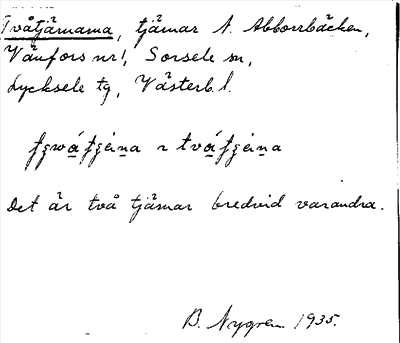 Tvåtjärnarna, tjärnar N. Abborrbäcken,
Vänfors nr 1, Sorsele sn,
Lycksele tg, Västerb. l.
Det är två tjärnar bredvid varandra.
B. Nygren 1935.